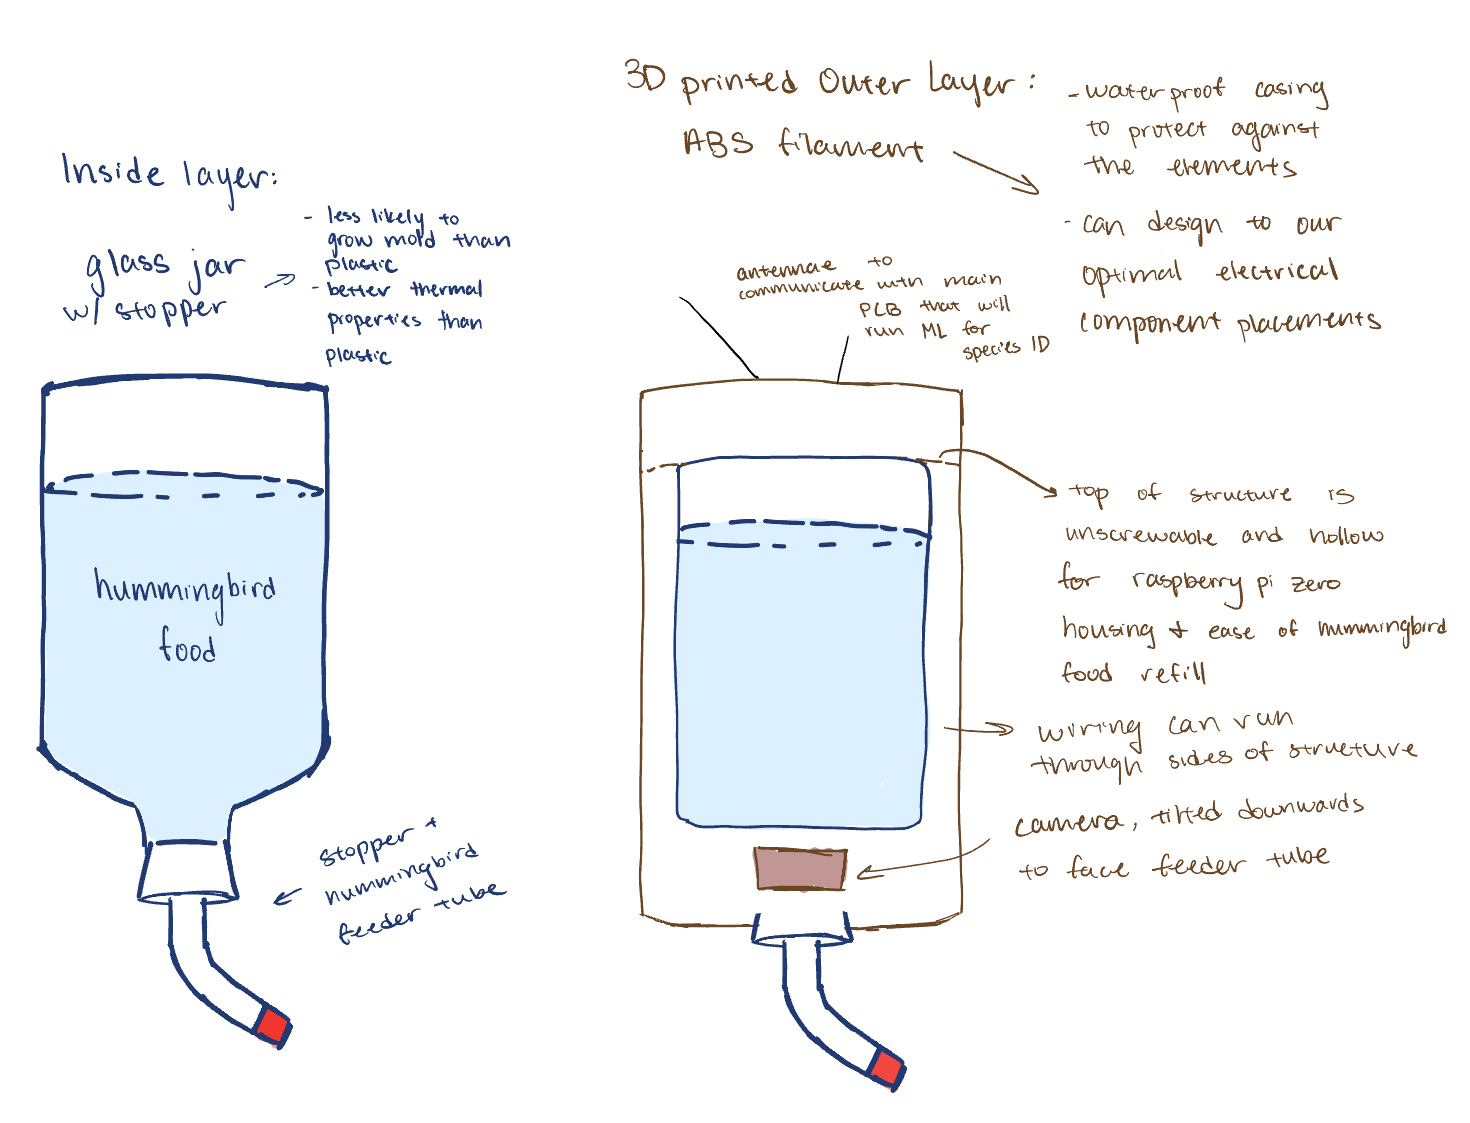 Inside layer:
glass jar
w/ stopper
- less likely to
grow mold than
plastic
- better thermal
properties than
plastic
hummingbird
food
stopper +
hummingbird
feeder tube
3D printed Outer Layer:
ABS filament
- waterproof casing
to protect against
the elements
- can design to our
optimal electrical
component placements
antennae to
communicate with main
PCB that will
run ML for
species ID
top of structure is
unscrewable and hollow
for raspberry pi zero
housing + ease of hummingbird
food refill
wiring can run
through sides of structure
camera, tilted downwards
to face feeder tube